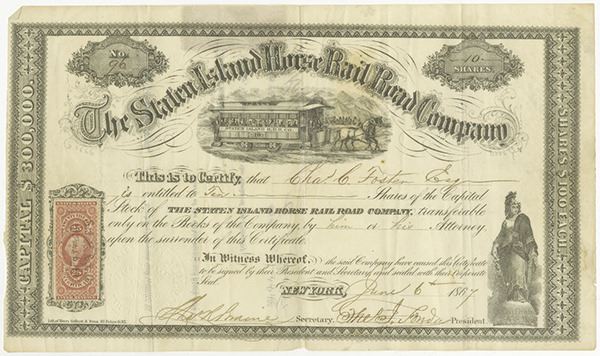 No.
76
10
SHARES.
The Staten Island Horse Rail Road Company
CAPITAL $300,000.
SHARES $100 EACH.
This is to Certify, that Chas. C. Foster Esq
is entitled to Ten Shares of the Capital
Stock of THE STATEN ISLAND HORSE RAIL ROAD COMPANY, transferable
only on the Books of the Company, by him or his Attorney
upon the surrender of this Certificate.
In Witness Whereof, the said Company have caused this Certificate
to be signed by their President and Secretary, and sealed with their Corporate
Seal
NEW YORK, June 6th 1867
Secretary. President.
25 25